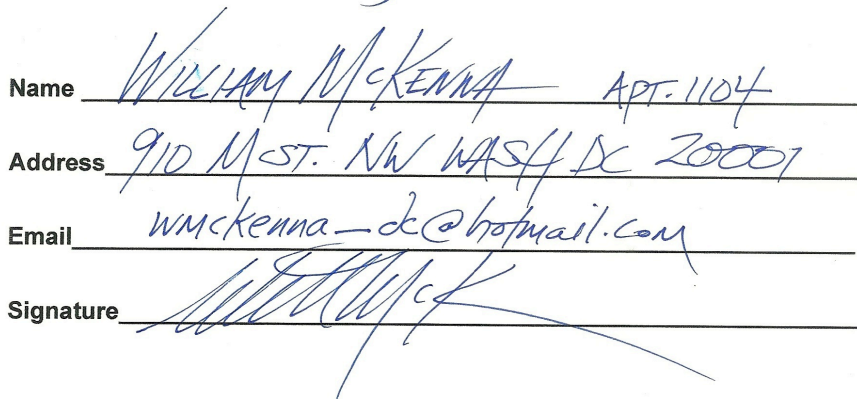 Name WILLIAM McKENNA APT. 1104
Address 910 M ST. NW WASH DC 20001
Email wmckenna_dc@hotmail.com
Signature